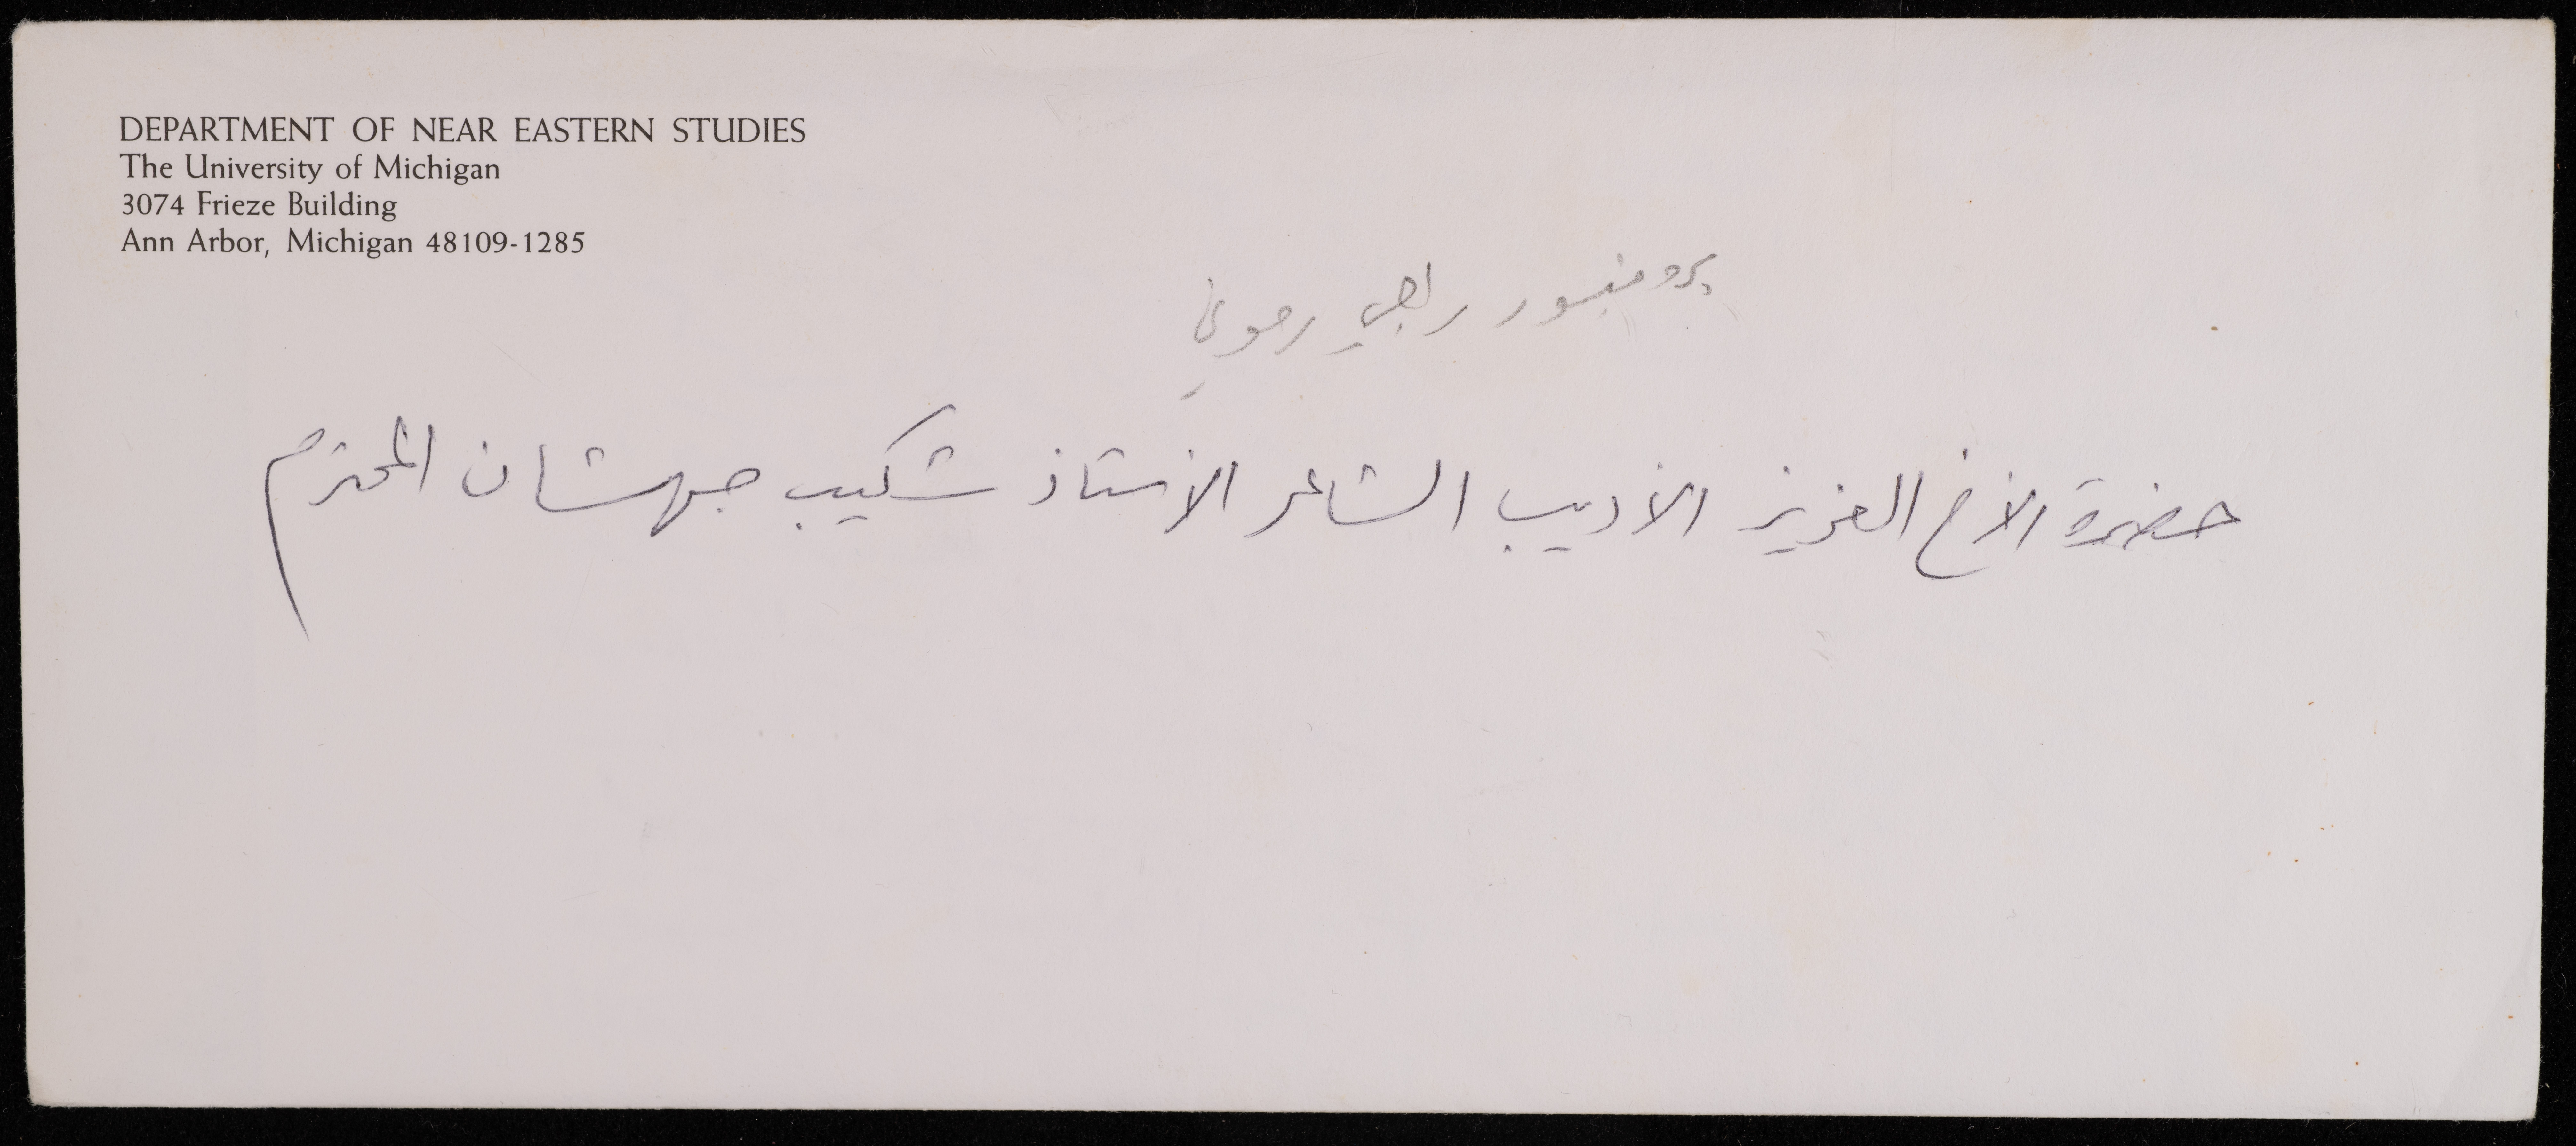 DEPARTMENT OF NEAR EASTERN STUDIES
The University of Michigan
3074 Frieze Building
Ann Arbor, Michigan 48109-1285
بروفيسور راجي رموني
حضرة الأخ العزيز الأديب الشاعر الأستاذ شكيب جهشان المحترم